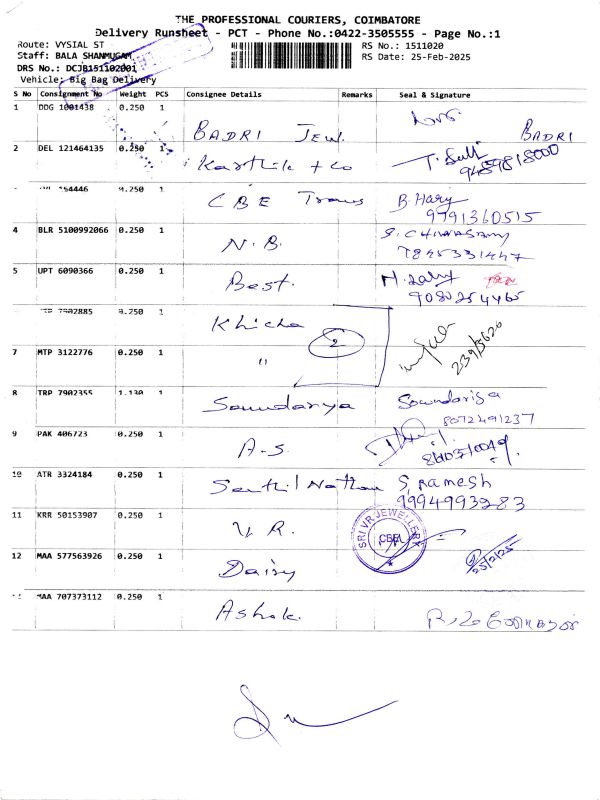 THE PROFESSIONAL COURIERS, COIMBATORE
Delivery Runsheet - PCT - Phone No.:0422-3505555 - Page No.:1
Route: VYSIAL ST
RS No.: 1511020
Staff: BALA SHANMUGAM
RS Date: 25-Feb-2025
DRS No.: DCJB151102001
Vehicle: Big Bag Delivery
S No Consignment No Weight PCS Consignee Details Remarks Seal & Signature
1 DDG 1001438 0.250 1
BADRI Jew. BADRI
2 DEL 121464135 0.250 1
Karthik + Co
9489818000
154446 0.250 1
CBE Trans B. Hary
9791360515
4 BLR 5100992066 0.250 1
N.B.
7845331447
5 UPT 6090366 0.250 1
Best.
9080254465
7902885 0.250 1
Khicha
2
7 MTP 3122776 0.250 1
"
8 TRP 7902355 1.130 1
Soundarya Soundariya
8072491237
9 PAK 406723 0.250 1
A-S.
10 ATR 3324184 0.250 1
Senthil Nathan S. Ramesh
9994993283
11 KRR 50153907 0.250 1
V R.
SRI VR JEWELLERY
CBE
12 MAA 577563926 0.250 1
Daisy
25/2/25
MAA 707373112 0.250 1
Ashok.